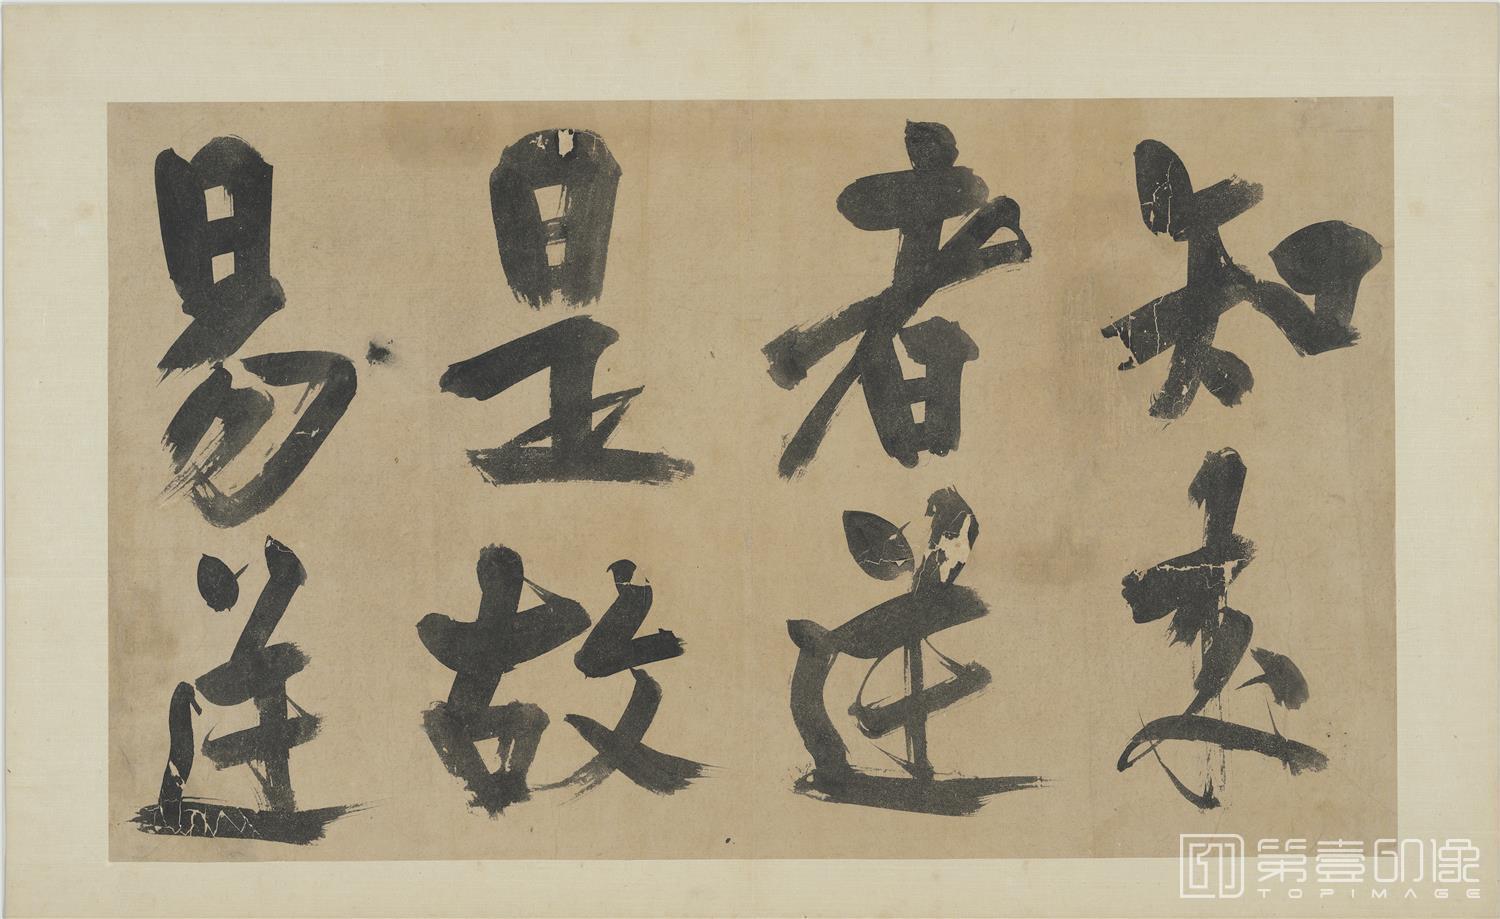 知来
者逆
是故
易逆
第壹印像
TOPIMAGE